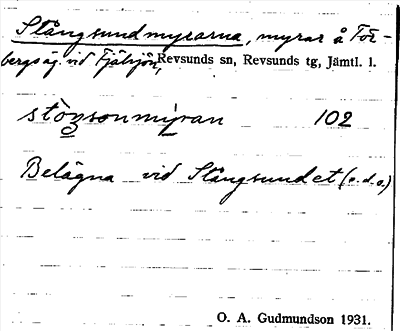 Stångsundmyrarna, myrar å Tor-
bergsäg. vid Fjälsjön, Revsunds sn, Revsunds tg, Jämtl. l.
stöŋsonmi̮ran 102
Belägna vid Stångsundet (s.d.o.)
O. A. Gudmundson 1931.